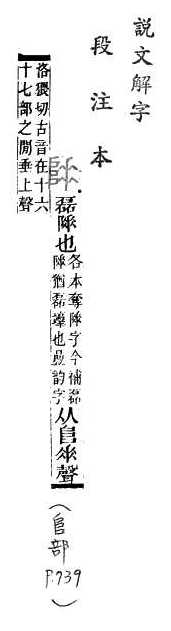 說文解字
段注本
磊也
各本奪字今補磊
猶磊也疊韵字
从𨸏𠂹聲
洛猥切古音在十六
十七部之閒垂上聲
(𨸏部
P.739)